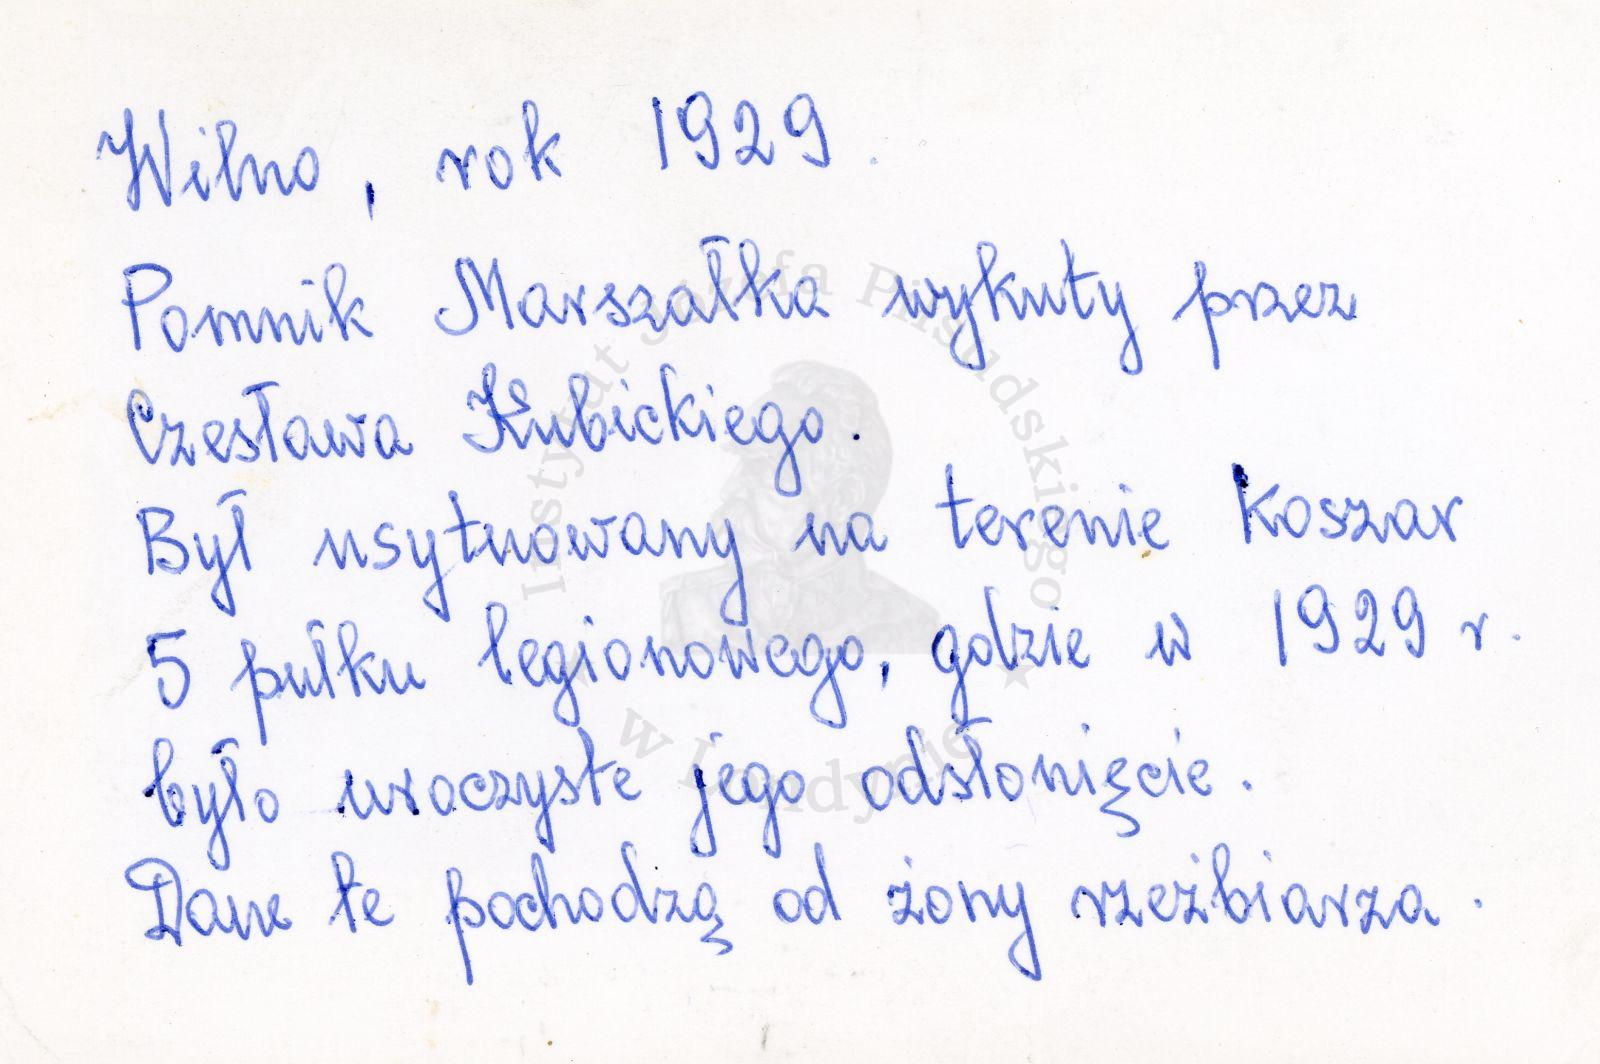 Wilno, rok 1929.
Pomnik Marszałka wykuty przez
Czesława Kubickiego.
Był usytuowany na terenie koszar
5 pułku legionowego, gdzie w 1929 r.
było uroczyste jego odsłonięcie.
Dane te pochodzą od żony rzeźbiarza.
Instytut Józefa Piłsudskiego
w Londynie